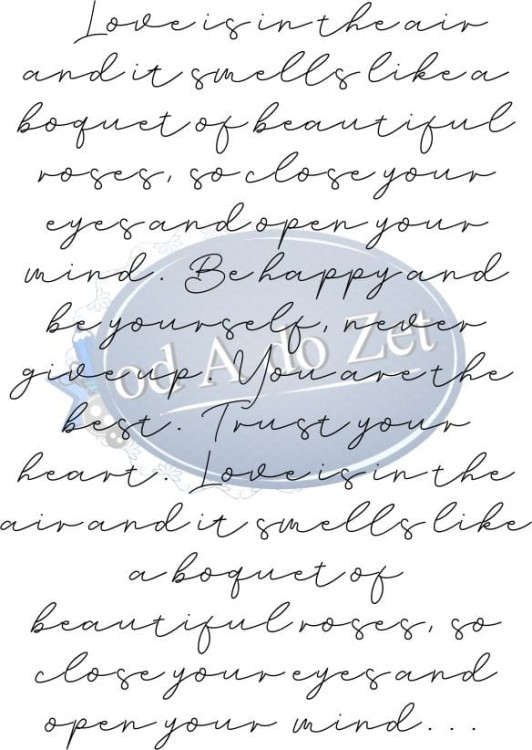 Love is in the air
and it smells like a
boquet of beautiful
roses, so close your
eyes and open your
mind. Be happy and
be yourself, never
od A do Zet
give up. You are the
best. Trust your
heart. Love is in the
air and it smells like
a boquet of
beautiful roses, so
close your eyes and
open your mind...